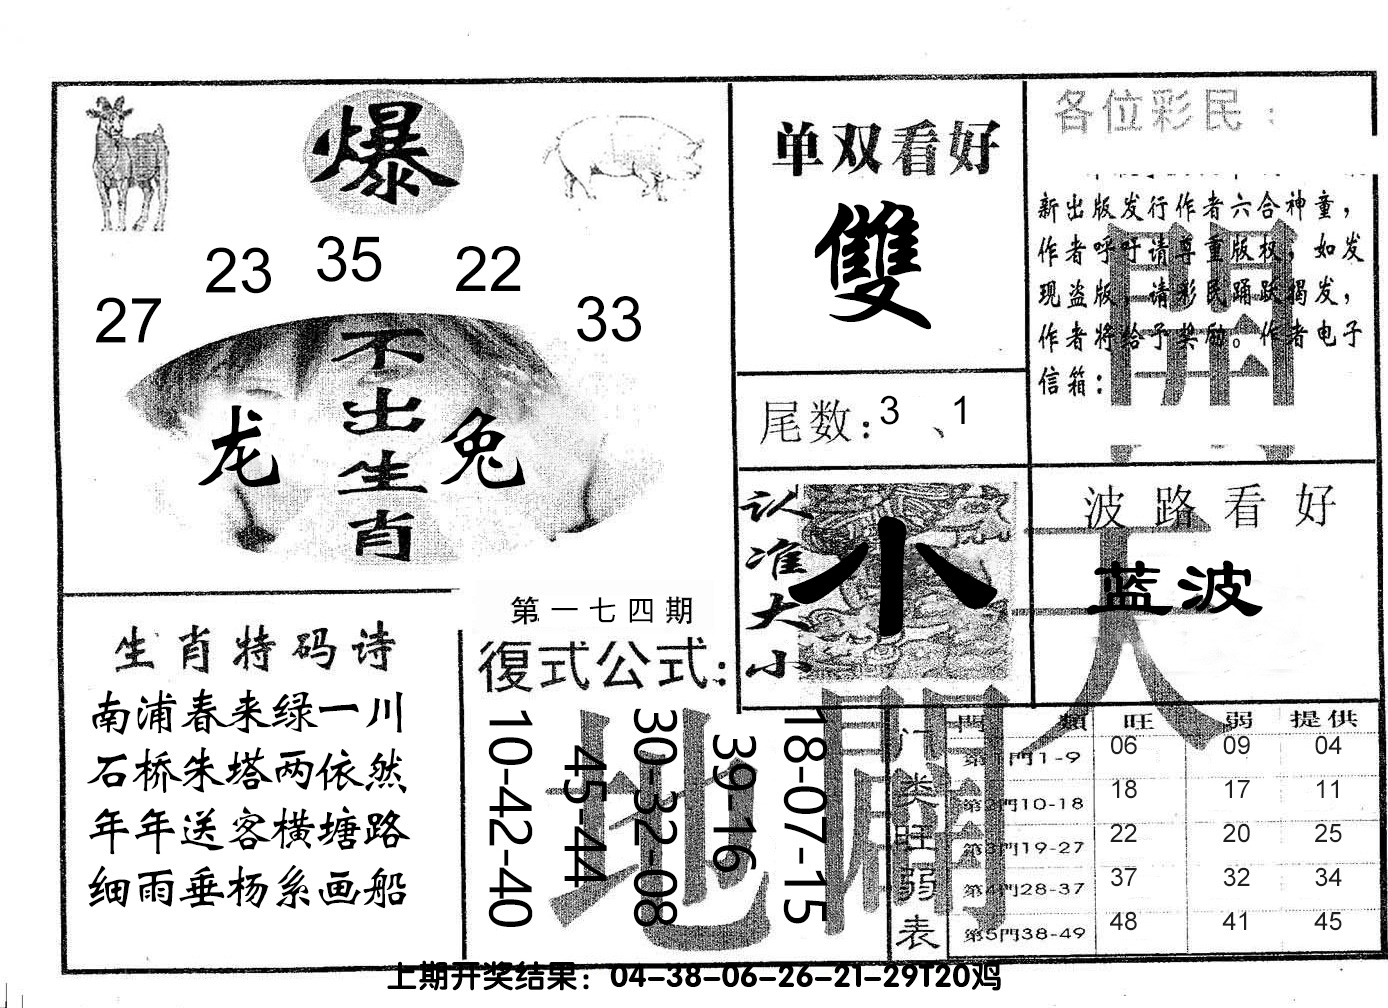 爆
23 35 22
27 33
不出生肖
龙 兔
单双看好
雙
尾数：3 、1
各位彩民：
新出版发行作者六合神童，
作者呼吁请尊重版权，如发
现盗版，请彩民踊跃揭发，
作者将给予奖励。作者电子
信箱：
認准大小
小
波路看好
蓝波
開
天
地
闢
生肖特码诗
南浦春来绿一川
石桥朱塔两依然
年年送客横塘路
细雨垂杨系画船
第一七四期
復式公式：
10-42-40
45-44
30-32-08
39-16
18-07-15
门类旺弱表
門類 旺 弱 提供
第1門1-9 06 09 04
第2門10-18 18 17 11
第3門19-27 22 20 25
第4門28-37 37 32 34
第5門38-49 48 41 45
上期开奖结果：04-38-06-26-21-29T20鸡